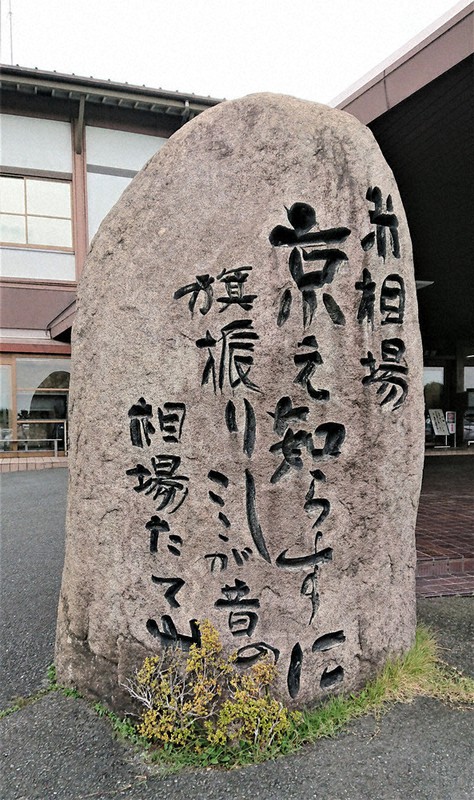 米相場
京え知らすに
旗振りし
ここが昔の
相場たて山